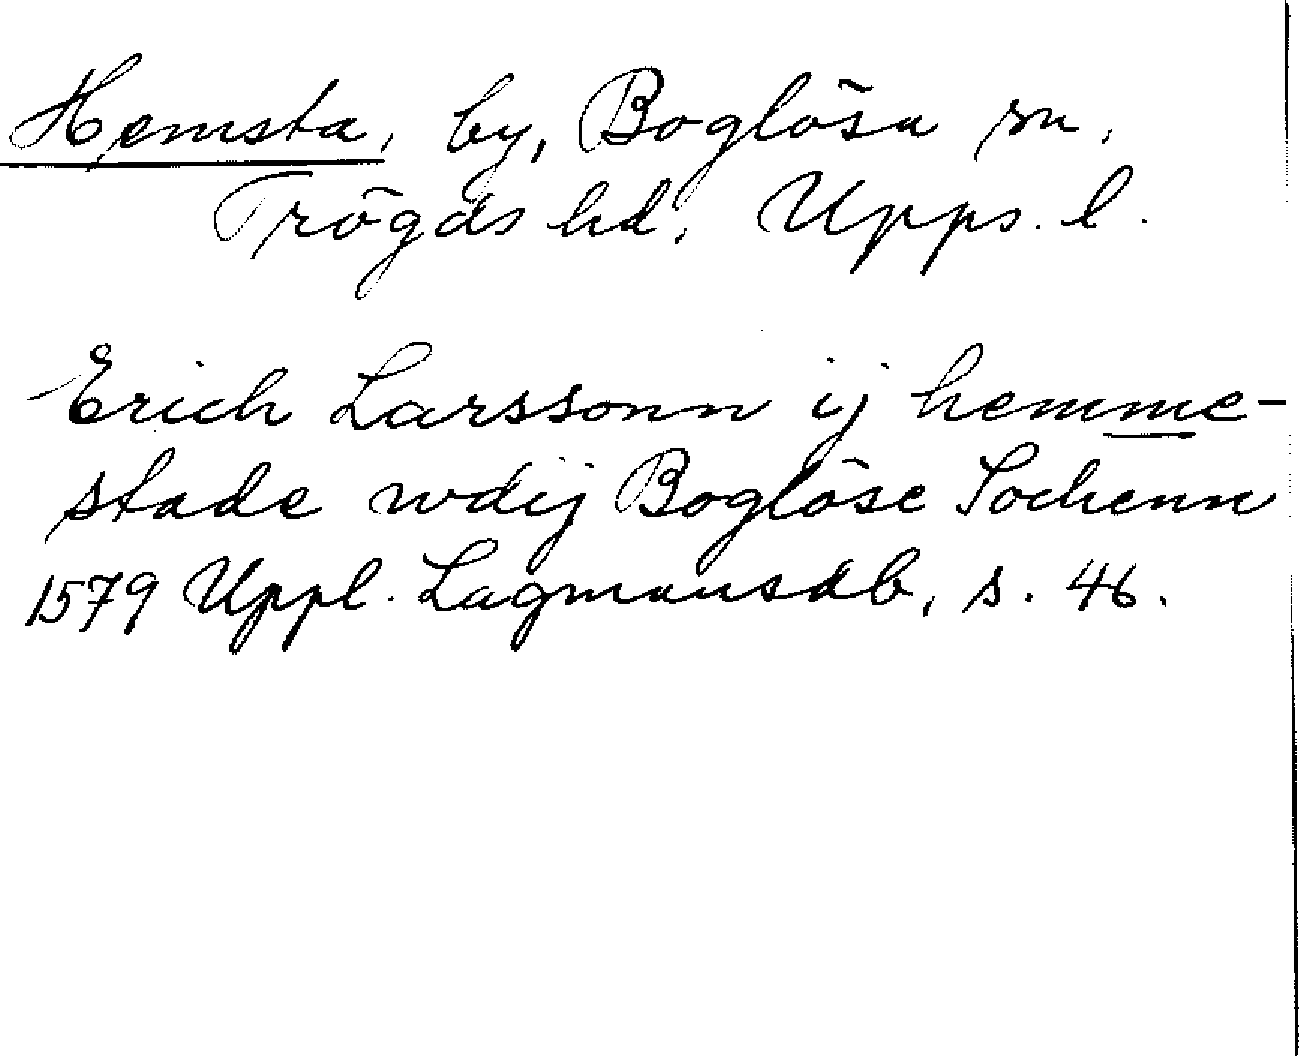 Hemsta, by, Boglösa sn,
Trögds hd, Upps. l.
Erich Larssonn ij hemme-
stade wdij Boglöse Sochenn
1579 Uppl. Lagmansdb, s. 46.